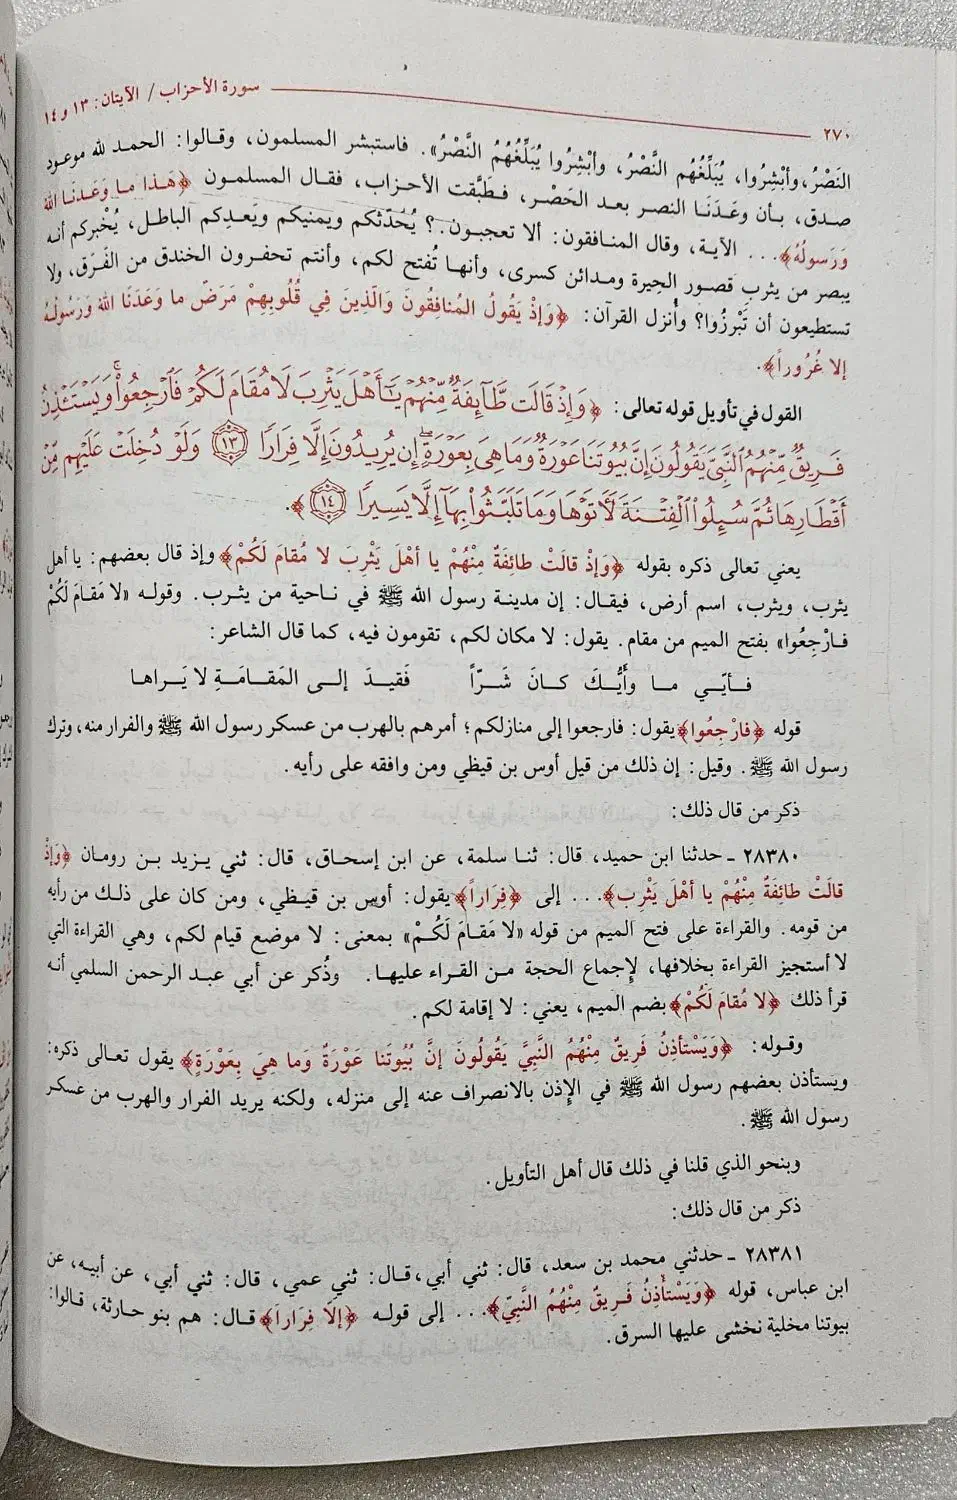 ٢٧٠ سورة الأحزاب / الآيتان: ١٣ و ١٤
النَصْرُ، وأبْشِرُوا، يُبَلِّغُهُم النَّصْرُ، وأبْشِرُوا يُبَلِّغُهُمُ النَّصْرُ». فاستبشر المسلمون، وقالوا: الحمد لله موعود
صدق، بأن وعَدَنَا النصر بعد الحَصْر، فطَبَّقت الأحزاب، فقال المسلمون ﴿هَـذا ما وَعَدَنَا اللهُ
وَرَسولُهُ﴾... الآية، وقال المنافقون: ألا تعجبون.؟ يُحَدّثكم ويمنيكم ويَعدِكم الباطل، يُخْبركم أنه
يبصر من يثرب قصور الحِيرة ومدائن كسرى، وأنها تُفتح لكم، وأنتم تحفرون الخندق من الفَرَق، ولا
تستطيعون أن تَبْرزُوا؟ وأُنزل القرآن: ﴿وَإذْ يَقُولُ المُنافِقُون وَالَّذِينَ فِي قُلُوبِهِمْ مَرَضٌ ما وَعَدَنَا اللهُ وَرَسُولُهُ
إلا غُرُوراً﴾.
القول في تأويل قوله تعالى: ﴿وَإِذۡ قَالَت طَّآئِفَةٌ مِّنۡهُمۡ يَٰٓأَهۡلَ يَثۡرِبَ لَا مُقَامَ لَكُمۡ فَٱرۡجِعُواْۚ وَيَسۡتَـٔۡذِنُ
فَرِيقٌ مِّنۡهُمُ ٱلنَّبِيَّ يَقُولُونَ إِنَّ بُيُوتَنَا عَوۡرَةٌ وَمَا هِيَ بِعَوۡرَةٍۖ إِن يُرِيدُونَ إِلَّا فِرَارًا ١٣ وَلَوۡ دُخِلَتۡ عَلَيۡهِم مِّنۡ
أَقۡطَارِهَا ثُمَّ سُئِلُواْ ٱلۡفِتۡنَةَ لَأٓتَوۡهَا وَمَا تَلَبَّثُواْ بِهَآ إِلَّا يَسِيرًا ١٤﴾.
يعني تعالى ذكره بقوله ﴿وَإذْ قالَتْ طائِفَةٌ مِنْهُمْ يا أهْلَ يَثْرِبَ لا مُقامَ لَكُمْ﴾ وإذ قال بعضهم: يا أهل
يثرب، ويثرب، اسم أرض، فيقال: إن مدينة رسول الله ﷺ في ناحية من يثرب. وقوله «لا مَقامَ لَكُمْ
فارْجِعُوا» بفتح الميم من مقام. يقول: لا مكان لكم، تقومون فيه، كما قال الشاعر:
فـأيّـي ما وأيُّـكَ كـانَ شَـرّاً فَقيدَ إلـى المَقـامَـةِ لا يَـراها
قوله ﴿فارْجِعُوا﴾ يقول: فارجعوا إلى منازلكم؛ أمرهم بالهرب من عسكر رسول الله ﷺ والفرار منه، وترك
رسول الله ﷺ. وقيل: إن ذلك من قيل أوس بن قيظي ومن وافقه على رأيه.
ذكر من قال ذلك:
٢٨٣٨٠ ـ حدثنا ابن حميد، قال: ثنا سلمة، عن ابن إسحاق، قال: ثني يزيد بن رومان ﴿وَإذْ
قالَتْ طائِفَةٌ مِنْهُمْ يا أهْلَ يَثْرِب﴾... إلى ﴿فِرَاراً﴾ يقول: أوس بن قيظي، ومن كان على ذلك من رأيه
من قومه. والقراءة على فتح الميم من قوله «لا مَقامَ لَكُمْ» بمعنى: لا موضع قيام لكم، وهي القراءة التي
لا أستجيز القراءة بخلافها، لإجماع الحجة من القراء عليها. وذُكر عن أبي عبد الرحمن السلمي أنه
قرأ ذلك ﴿لا مُقامَ لَكُمْ﴾ بضم الميم، يعني: لا إقامة لكم.
وقوله: ﴿وَيَسْتأذِنُ فَرِيقٌ مِنْهُمُ النَّبِيَّ يَقُولُونَ إنَّ بُيُوتَنا عَوْرَةٌ وَما هِيَ بِعَوْرَةٍ﴾ يقول تعالى ذكره:
ويستأذن بعضهم رسول الله ﷺ في الإذن بالانصراف عنه إلى منزله، ولكنه يريد الفرار والهرب من عسكر
رسول الله ﷺ.
وبنحو الذي قلنا في ذلك قال أهل التأويل.
ذكر من قال ذلك:
٢٨٣٨١ ـ حدثني محمد بن سعد، قال: ثني أبي، قال: ثني عمي، قال: ثني أبي، عن أبيه، عن
ابن عباس، قوله ﴿وَيَسْتأذِنُ فَرِيقٌ مِنْهُمُ النَّبِيّ﴾... إلى قوله ﴿إلا فِرَاراً﴾ قال: هم بنو حارثة، قالوا:
بيوتنا مخلية نخشى عليها السرق.